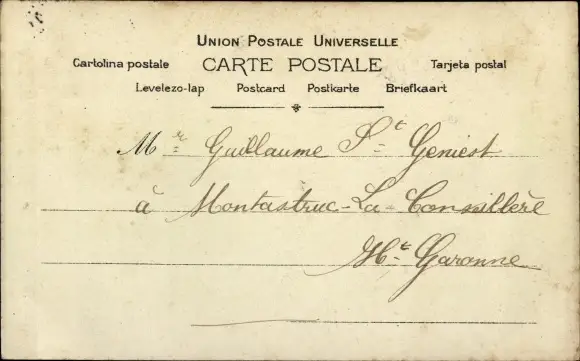 UNION POSTALE UNIVERSELLE
Cartolina postale CARTE POSTALE Tarjeta postal
Levelezo-lap Postcard Postkarte Briefkaart
Mr Guillaume St Geniest
à Montastruc-La-Conseillère
Hte Garonne